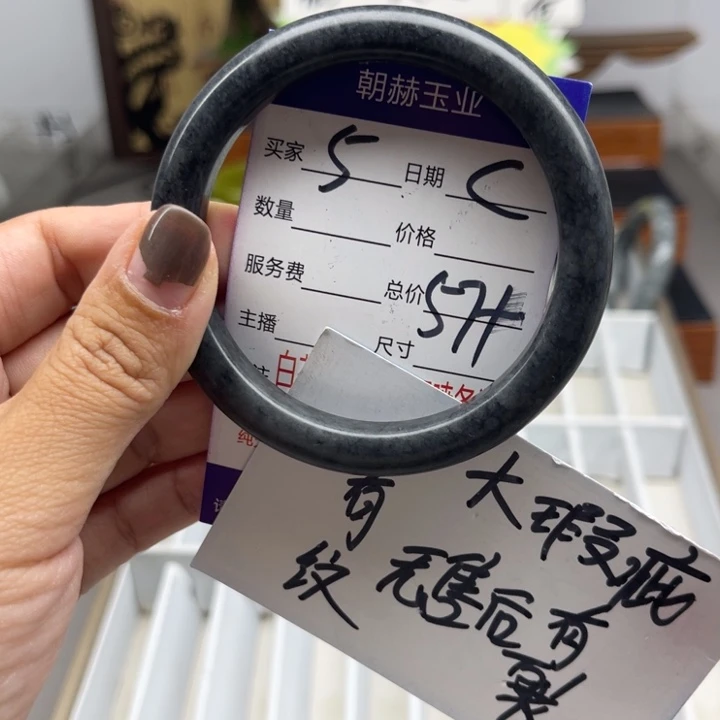 朝赫玉业
买家 5 日期 C
数量 价格
服务费 总价 5H
主播 尺寸
有 大瑕疵
纹 无售后有